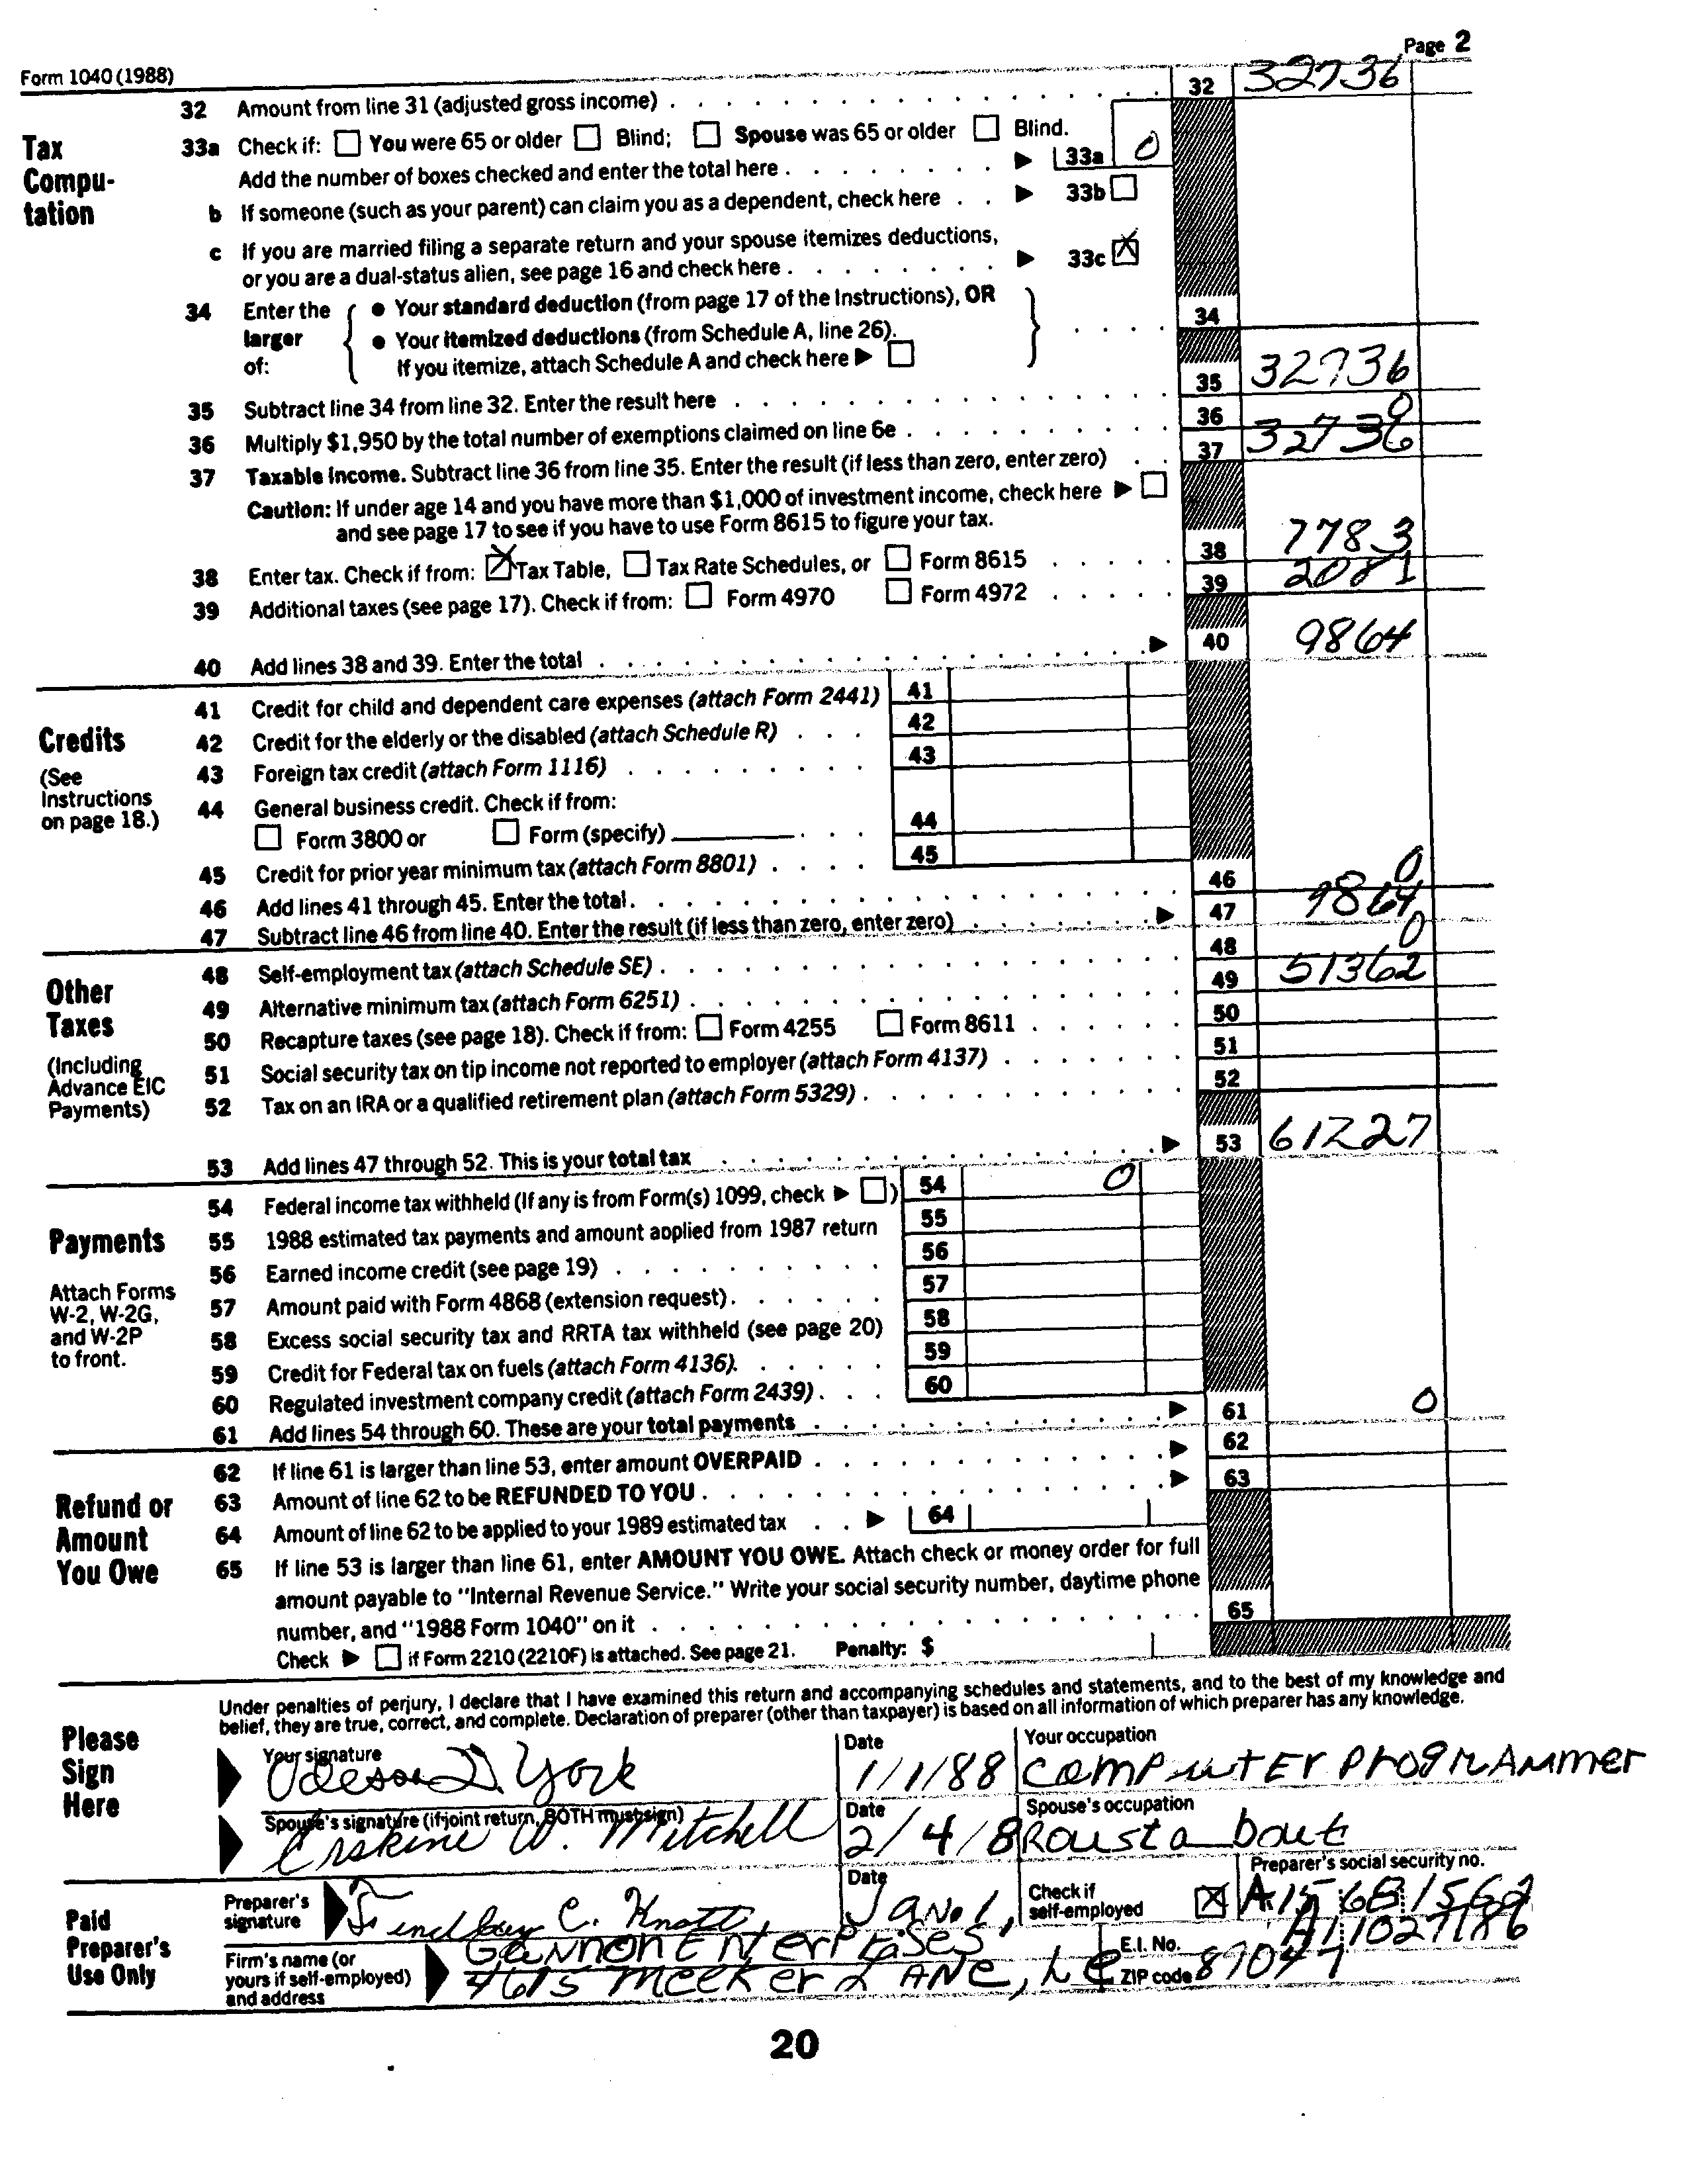 Page 2
Form 1040 (1988)
32 Amount from line 31 (adjusted gross income) 32 32736
Tax Computation
33a Check if: You were 65 or older Blind; Spouse was 65 or older Blind.
Add the number of boxes checked and enter the total here 33a 0
b If someone (such as your parent) can claim you as a dependent, check here 33b
c If you are married filing a separate return and your spouse itemizes deductions,
or you are a dual-status alien, see page 16 and check here 33c X
34 Enter the larger of: { ● Your standard deduction (from page 17 of the Instructions), OR
● Your itemized deductions (from Schedule A, line 26).
If you itemize, attach Schedule A and check here } 34
35 Subtract line 34 from line 32. Enter the result here 35 32736
36 Multiply $1,950 by the total number of exemptions claimed on line 6e 36 0
37 Taxable income. Subtract line 36 from line 35. Enter the result (if less than zero, enter zero) 37 32736
Caution: If under age 14 and you have more than $1,000 of investment income, check here
and see page 17 to see if you have to use Form 8615 to figure your tax.
38 Enter tax. Check if from: X Tax Table, Tax Rate Schedules, or Form 8615 38 7783
39 Additional taxes (see page 17). Check if from: Form 4970 Form 4972 39 2081
40 Add lines 38 and 39. Enter the total 40 9864
Credits
(See Instructions on page 18.)
41 Credit for child and dependent care expenses (attach Form 2441) 41
42 Credit for the elderly or the disabled (attach Schedule R) 42
43 Foreign tax credit (attach Form 1116) 43
44 General business credit. Check if from:
Form 3800 or Form (specify) 44
45 Credit for prior year minimum tax (attach Form 8801) 45
46 Add lines 41 through 45. Enter the total 46 0
47 Subtract line 46 from line 40. Enter the result (if less than zero, enter zero) 47 9864
Other Taxes
(Including Advance EIC Payments)
48 Self-employment tax (attach Schedule SE) 48 0
49 Alternative minimum tax (attach Form 6251) 49 51362
50 Recapture taxes (see page 18). Check if from: Form 4255 Form 8611 50
51 Social security tax on tip income not reported to employer (attach Form 4137) 51
52 Tax on an IRA or a qualified retirement plan (attach Form 5329) 52
53 Add lines 47 through 52. This is your total tax 53 61227
Payments
Attach Forms W-2, W-2G, and W-2P to front.
54 Federal income tax withheld (If any is from Form(s) 1099, check ) 54 0
55 1988 estimated tax payments and amount applied from 1987 return 55
56 Earned income credit (see page 19) 56
57 Amount paid with Form 4868 (extension request) 57
58 Excess social security tax and RRTA tax withheld (see page 20) 58
59 Credit for Federal tax on fuels (attach Form 4136) 59
60 Regulated investment company credit (attach Form 2439) 60
61 Add lines 54 through 60. These are your total payments 61 0
62 If line 61 is larger than line 53, enter amount OVERPAID 62
Refund or Amount You Owe
63 Amount of line 62 to be REFUNDED TO YOU 63
64 Amount of line 62 to be applied to your 1989 estimated tax 64
65 If line 53 is larger than line 61, enter AMOUNT YOU OWE. Attach check or money order for full
amount payable to "Internal Revenue Service." Write your social security number, daytime phone
number, and "1988 Form 1040" on it 65
Check if Form 2210 (2210F) is attached. See page 21. Penalty: $
Under penalties of perjury, I declare that I have examined this return and accompanying schedules and statements, and to the best of my knowledge and
belief, they are true, correct, and complete. Declaration of preparer (other than taxpayer) is based on all information of which preparer has any knowledge.
Please Sign Here
Your signature Date Your occupation
Odessa D. York 1/1/88 computer programmer
Spouse's signature (if joint return, BOTH must sign) Date Spouse's occupation
Erskine W. Mitchell 2/4/8 Roustabout
Paid Preparer's Use Only
Preparer's signature C. Knott Date Jan. 1, Check if self-employed X Preparer's social security no.
Firm's name (or yours if self-employed) and address Gannon Enterprises E.I. No.
4615 Meeker Lane, ZIP code 89047
20